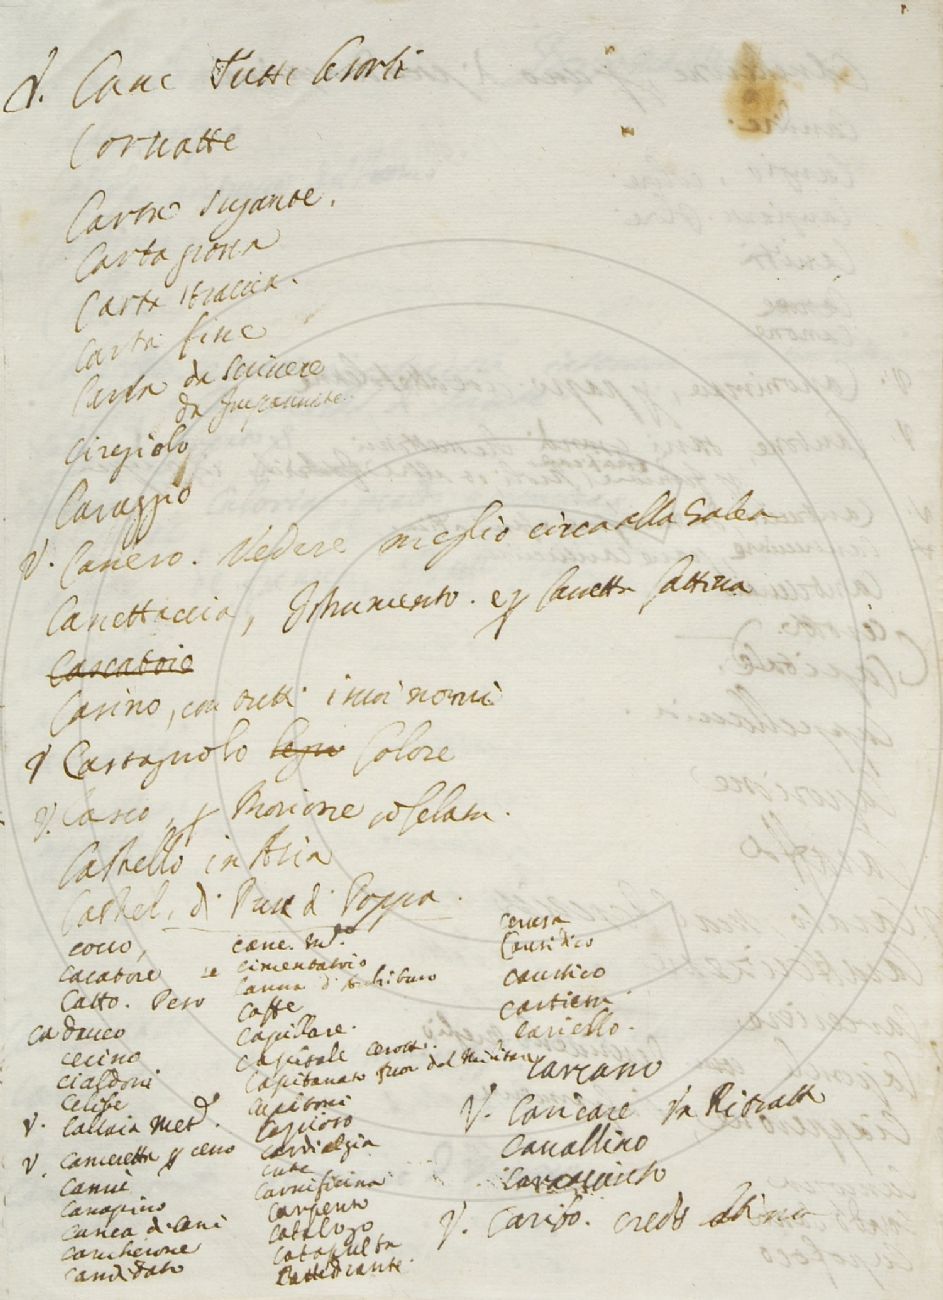 V. Cane Tutte le sorti
Cornatte
Carta sugante.
Carta grossa
Carta straccia.
Carta fine
Carta da scrivere
da Impannate
Ciregiolo
Caraggio
V. Canero. Vedere meglio circa alla Galea
Canettaccia, Istrumento. e p Canetta Cattiva
Cascatoie
Casino, con tutti i suoi nomi
V Castagnolo legno Colore
V. Casco, p Morione o Celata.
Castello in Aria
Castel. di Puu di Poppa.
cocco,
cacatore
Catto. Pero
Caduceo
cecino
cialdoni
Celibe
V. Callaia Met.
V. cameretta p ceno
Canni
Canapino
Canea di Cani
candidato
cane. Md.
cimentatorio
Canna d'Archibuso
Caffe
Capillare.
Capitale
Capitanato fuor del Militare
Capitoni
Capioso
Cardialgia
Carnificina
Carpento
Catalogo
catapulta
Cattedrante
cerusa
Causidico
caustico
cartiera.
Cariello.
Carcano
V. Caricare p.a Ritratti
Cavallino
V. Caribo. credo